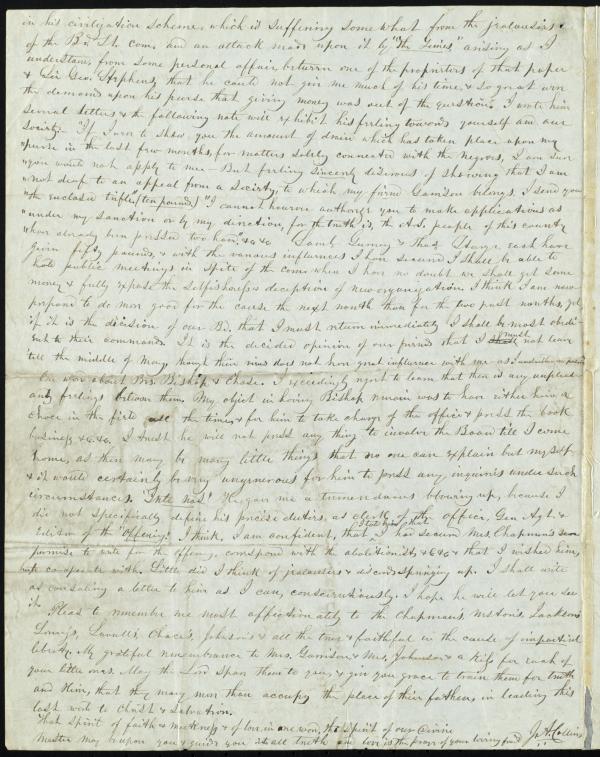 in his civilization scheme, which is suffering somewhat from the jealousies
of the Br. St. Com. and an attack made upon it by "The Times," arising as I
understand, from some personal affair between one of the proprietors of that paper
& Sir Geo. Stephens, that he could not give me much of his time, & so great were
the demands upon his purse that giving money was out of the question. I wrote him
several letters & the following note will exhibit his feeling towards yourself and our
Society. "If I were to show you the amount of drain which has taken place upon my
"purse in the last few months, for matters solely connected with the negroes, I am sure
"you would not apply to me— But feeling sincerely desirous of showing that I am
"not deaf to an appeal from a Society, to which my friend Garrison belongs, I send you
"the enclosed trifle, (ten pounds) "I cannot however authorize you to make applications as
"under my sanction or by my direction, for the truth is, the A.S. people of this country
"have already been pressed too hard," &c &c. Lamb, Gurney & Thos. Sturge each have
given fifty pounds, & with the various influences I have secured I shall be able to
hold public meetings in spite of the com. when I have no doubt we shall get some
money & fully expose the selfishness & deception of new organization. I think I am now
prepared to do more good for the cause the next month than for the two past months, yet
if it is the decision of our Bd. that I must return immediately I shall be most obedi-
ent to their commands. It is the decided opinion of our friends that I must not leave
till the middle of May, though their views does not have great influence with me as
One word about Brs. Bishop & Chase. I exceedingly regret to learn that there is any unpleas-
ant feelings between them. My object in having Bishop remain was to have either him or
Chase in the field all the time, & for him to take charge of the office & press the book
business &c &c. I trust he will not press any thing to involve the Board till I come
home, as there may be many little things that no one can explain but myself
& it would certainly be very ungenerous for him to press any inquiries under such
circumstances. He gave me a tremendous blowing up, because I
did not specifically define his precise duties, as clerk of the office, Gen. Agt. &
Editor of the "Offering." I think, I am confident, that I had secured Mrs. Chapman's
promise to write for the offering, correspond with the abolitionists, &c &c & that I wished him,
to co-operate with. Little did I think of jealousies & discords springing up. I shall write
as consoling a letter to him as I can, conscientiously. I hope he will let you see
it.
Please to remember me most affectionately to the Chapman's, Weston's, Jackson's
Loring's, Lovell's, Chace's, Johnson's & all the true & faithful in the cause of impartial
liberty. My grateful remembrance to Mrs. Garrison & Mrs. Johnson & a kiss for each of
your little ones. May the Lord spare them to you, & give you grace to train them for truth
and Him, that they may more than occupy the place of their fathers, in leading this
lost world to Christ & salvation.
That spirit of faith & meekness & of love, in one word, the spirit of our Divine
Master may be upon you & guide you into all truth and love is the prayer of your loving friend J.A. Collins